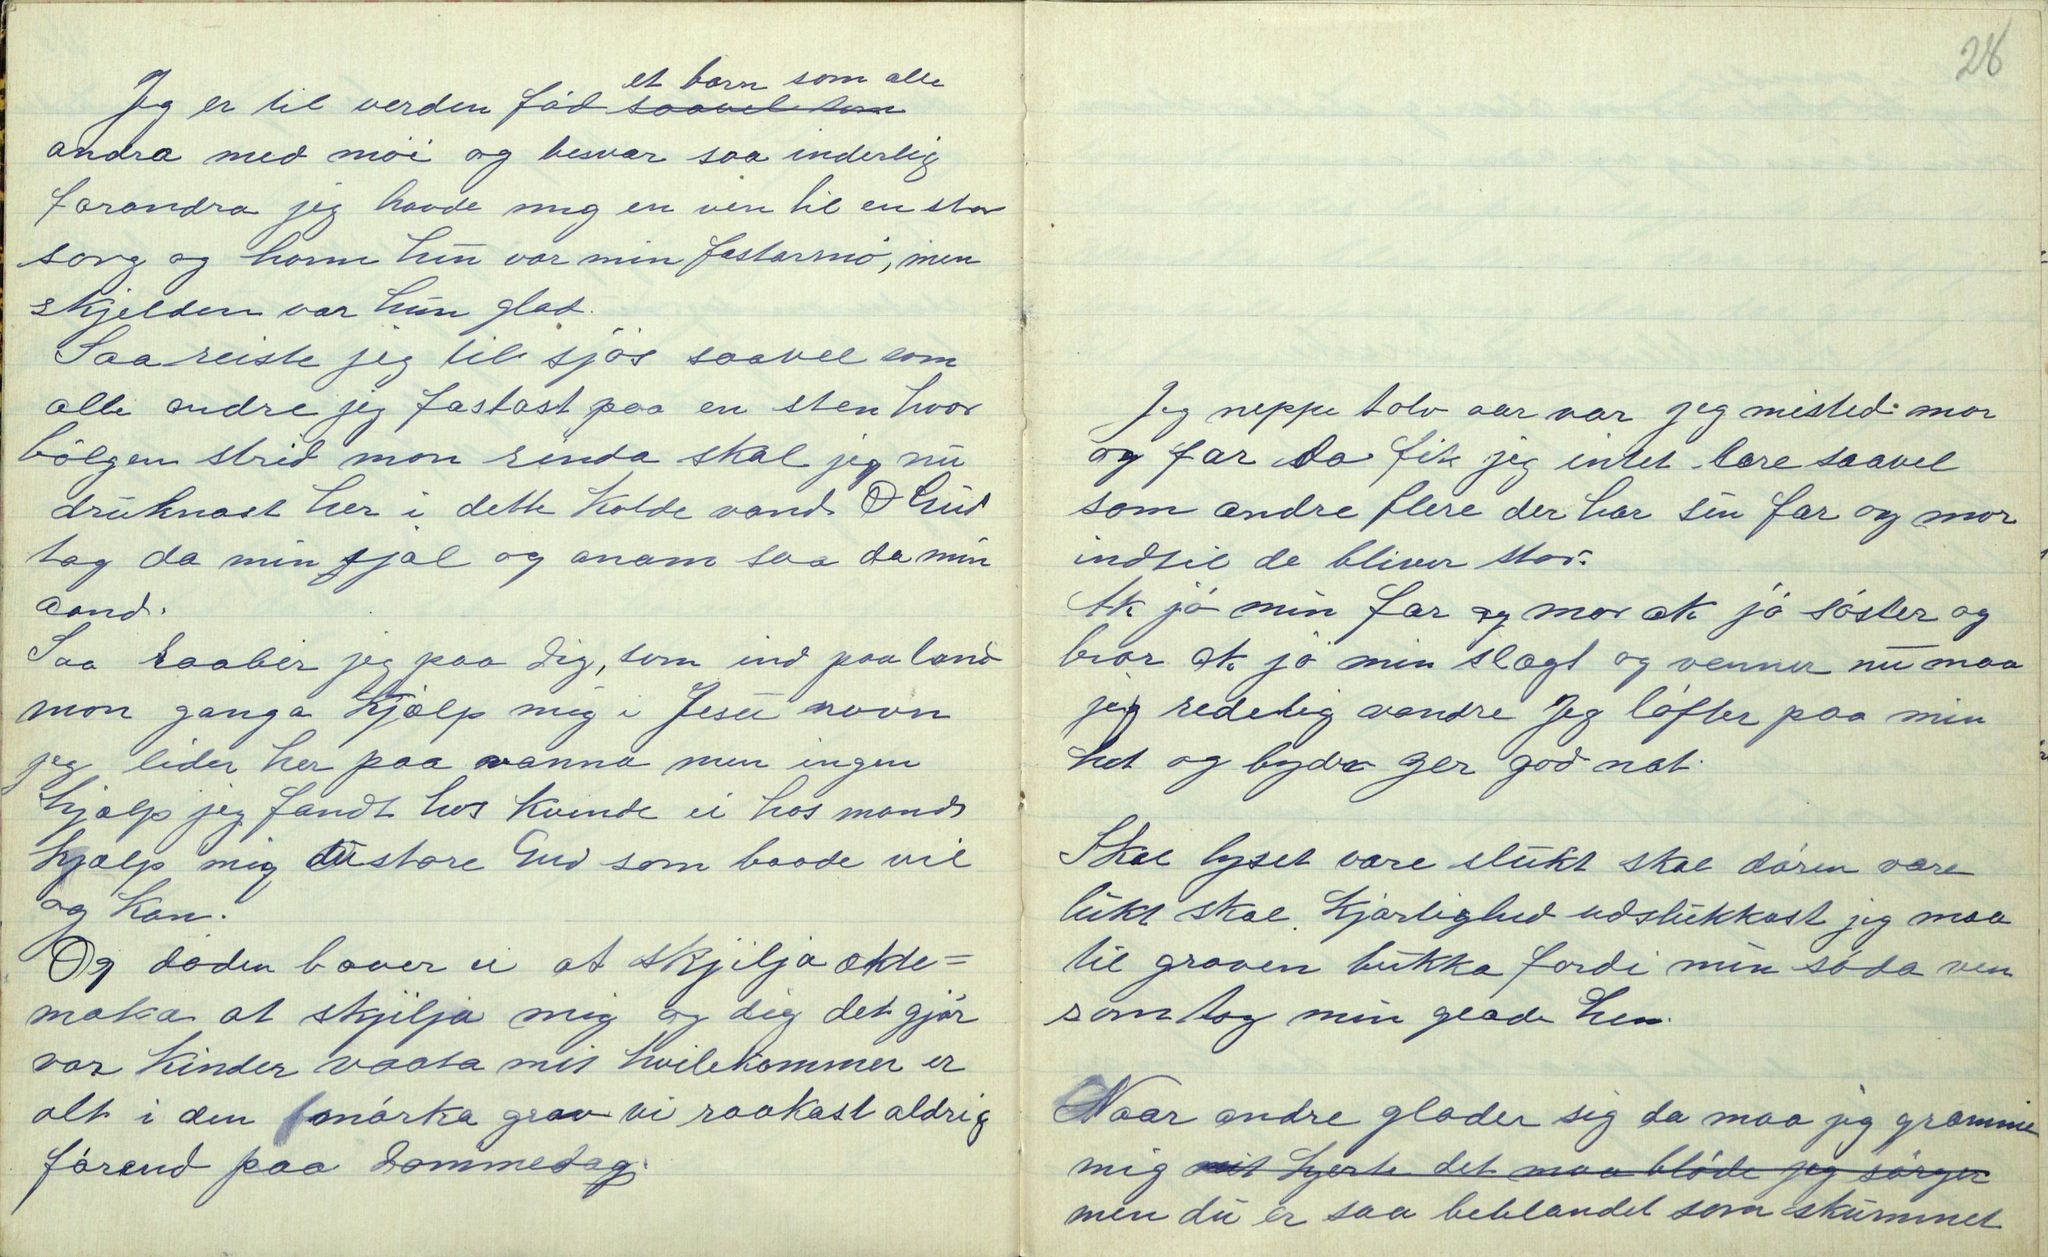 et barn som alle
Jeg er til verden fød saavel som
andra med möi og besvær saa inderlig
forandra jeg havde mig en ven til en stor
sorg og harm hun var min fastarmö, men
skjelden var hun glad.
Saa reiste jeg til sjös saavel som
alle andre jeg fastast paa en sten hvor
bölgen strid mon renda skal jeg nu
druknast her i dette kolde vand O Gud
tag da min sjæl og anam saa da min
aand.
Saa raaber jeg paa dig, som ind paa land
mon ganga hjælp mig i Jesu navn
jeg lider her paa vanna men ingen
hjælp jeg fandt hos kvinde ei hos mand
hjælp mig du store Gud som baade vil
og kan.
Og döden bæver ei at skjilja ækte=
maka at skjilja mig og dig det gjör
vor kinder vaata mit hvilekammer er
alt i den mörka grav vi raakast aldrig
förend paa dommedag.
28
Jeg neppe tolv aar var jeg misted mor
og far da fik jeg intet lære saavel
som andre flere der har sin far og mor
indtil de bliver stor.
Ak jö min far og mor ak jö söster og
bror ak jö min slægt og venner nu maa
jeg redelig vandre Jeg löfter paa min
hat og byder Jer god nat.
Skal lyset være slukt skal dören være
lukt skal kjærlighed udslukkast jeg maa
til graven bukka fordi min söda ven
som tog min glæde hen.
Naar andre glæder sig da maa jeg græmme
mig mit hjerte det maa blöde jeg sörger
men du er saa beblandet som skummet